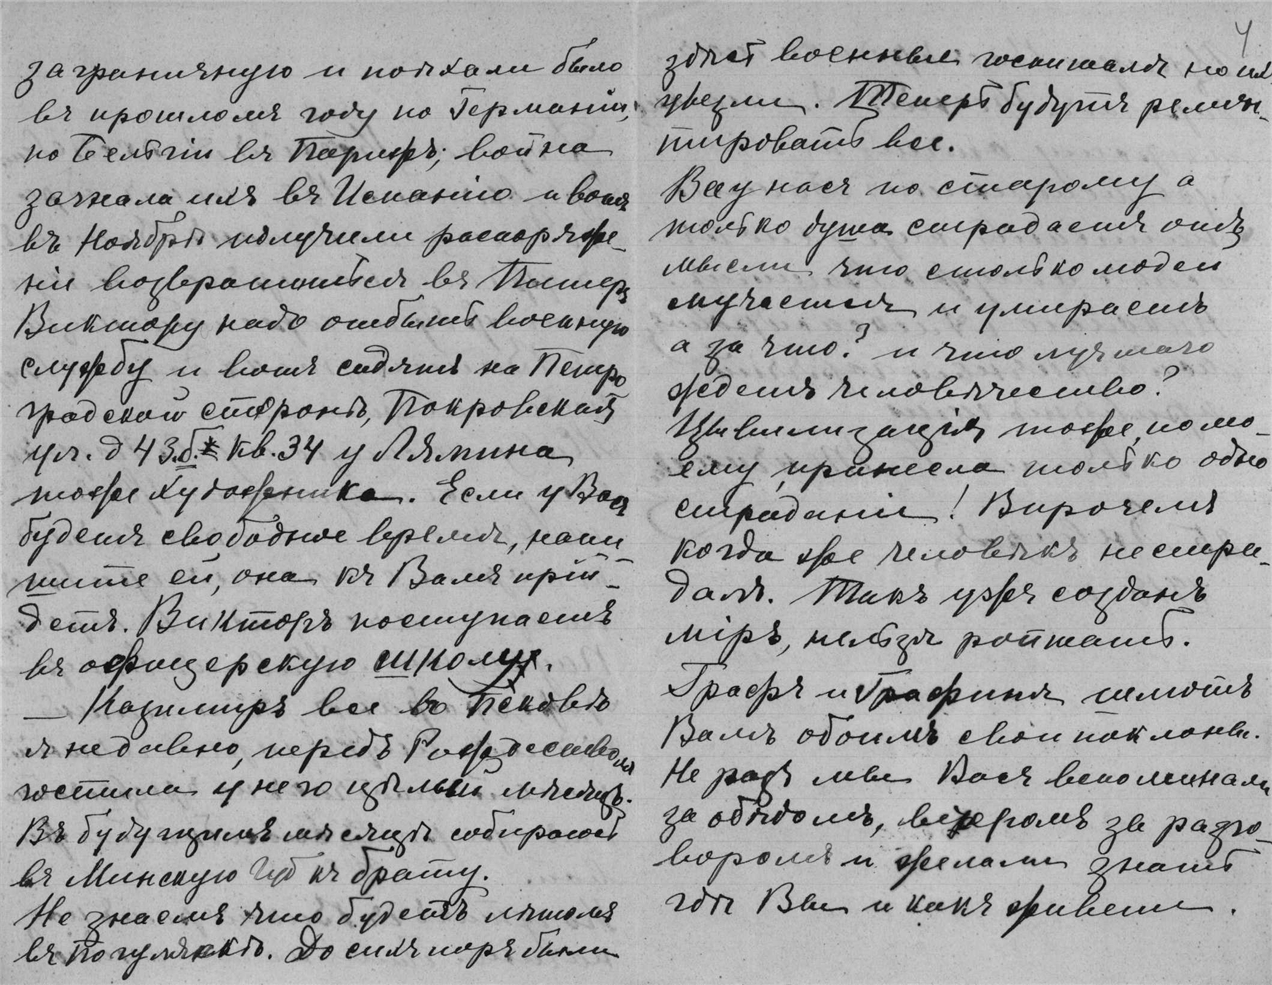 заграничную и поѣхали было
въ прошломъ году по Германіи,
по Бельгіи въ Парижъ; война
загнала ихъ въ Испанію и вотъ
въ Ноябрѣ получили распоряже-
ніе возвратиться въ Питеръ
Виктору надо отбыть военную
службу и вотъ сидятъ на Петро
градской сторонѣ, Покровская
ул. д 43.б. кв. 34 у Лямина
тоже художника. Если у Васъ
будетъ свободное время, напи
шите ей, она къ Вамъ прій-
детъ. Викторъ поступаетъ
въ офицерскую школу.
— Казимиръ все во Псковѣ
я недавно, передъ Рождествомъ
гостила у него цѣлый мѣсяцъ.
Въ будущемъ мѣсяцѣ собираюсь
въ Минскую Губ къ брату.
Не знаемъ что будетъ лѣтомъ
въ Погулянкѣ. До сихъ поръ были
4
здѣсь военные госпиталя но ихъ
увезли. Теперь будутъ ремон-
тировать все.
Все у насъ по старому а
только душа страдаетъ отъ
мысли что столько людей
мучается и умираетъ
а за что? и что лучшаго
ждетъ человѣчество?
Цивилизація тоже, по мо-
ему, принесла только одно
страданіе! Впрочемъ
когда же человѣкъ не стра-
далъ. Такъ уже созданъ
міръ, нельзя роптать.
Графъ и Графиня шлютъ
Вамъ обоимъ свои поклоны.
Не разъ мы Васъ вспоминали
за обѣдомъ, вечеромъ за разго-
воромъ и желали знать
гдѣ Вы и какъ живете.